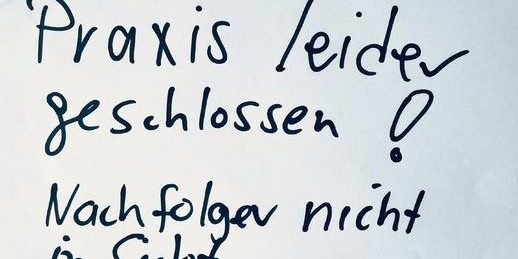 Praxis leider
geschlossen!
Nachfolger nicht
in Sicht